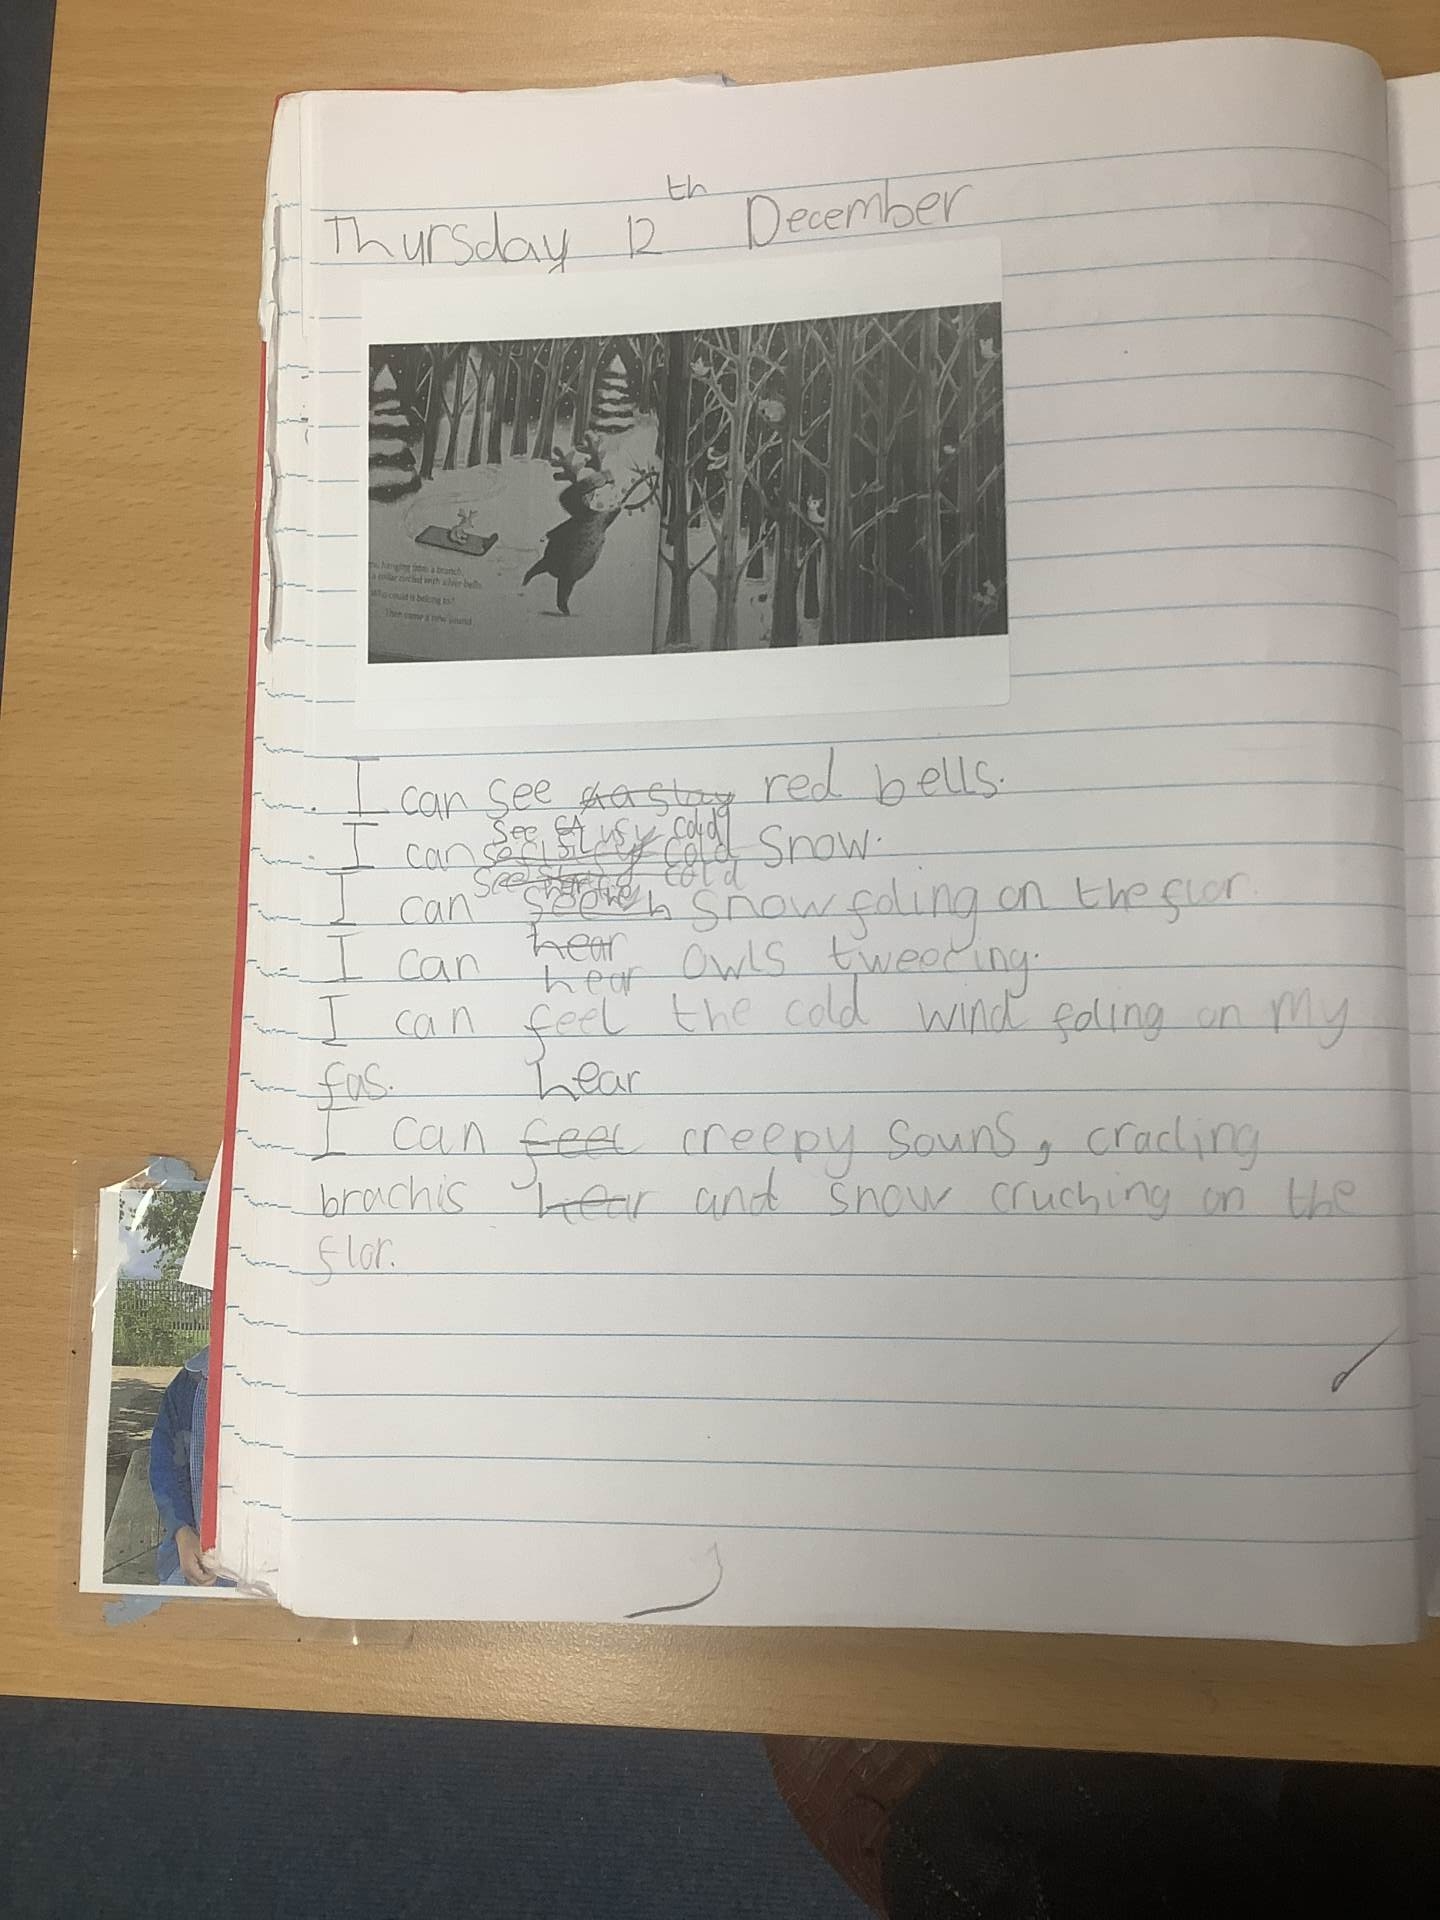 Thursday 12th December
hanging from a branch,
a collar circled with silver bells.
Who could it belong to?
Then came a new sound
I can see red bells.
see cold
I can cold snow.
see cold
I can snow faling on the flor.
hear
I can hear owls tweeting.
I can feel the cold wind faling on my
fas. hear
I can feel creepy souns, cracling
brachis hear and snow cruching on the
flor.